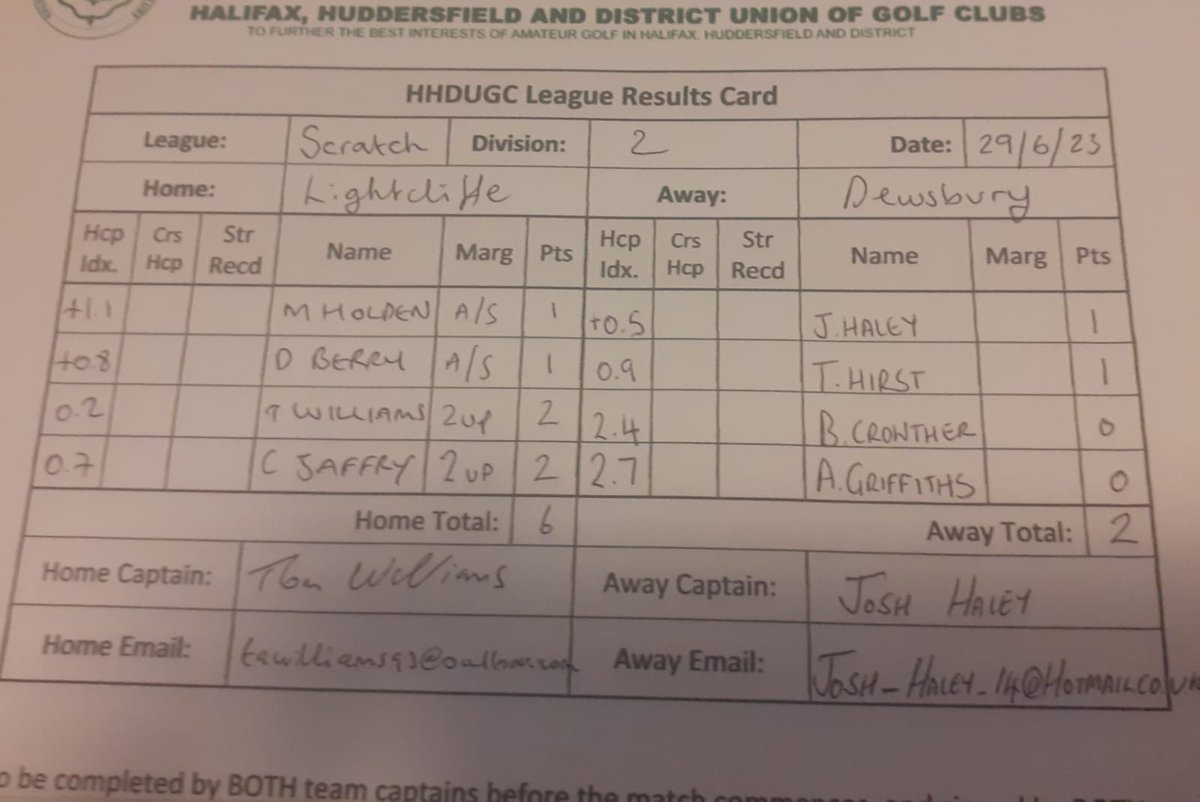 HALIFAX, HUDDERSFIELD AND DISTRICT UNION OF GOLF CLUBS
TO FURTHER THE BEST INTERESTS OF AMATEUR GOLF IN HALIFAX, HUDDERSFIELD AND DISTRICT
HHDUGC League Results Card
League: Scratch Division: 2 Date: 29/6/23
Home: Lightcliffe Away: Dewsbury
Hcp Idx. Crs Hcp Str Recd Name Marg Pts Hcp Idx. Crs Hcp Str Recd Name Marg Pts
+1.1 M HOLDEN A/S 1 +0.5 J. HALEY 1
+0.8 D BERRY A/S 1 0.9 T. HIRST 1
0.2 T WILLIAMS 2up 2 2.4 B. CROWTHER 0
0.7 C JAFFRY 2 UP 2 2.7 A. GRIFFITHS 0
Home Total: 6 Away Total: 2
Home Captain: Tom Williams Away Captain: JOSH HALEY
Home Email: Away Email: JOSH_HALEY_14@HOTMAIL.CO.UK
o be completed by BOTH team captains before the match